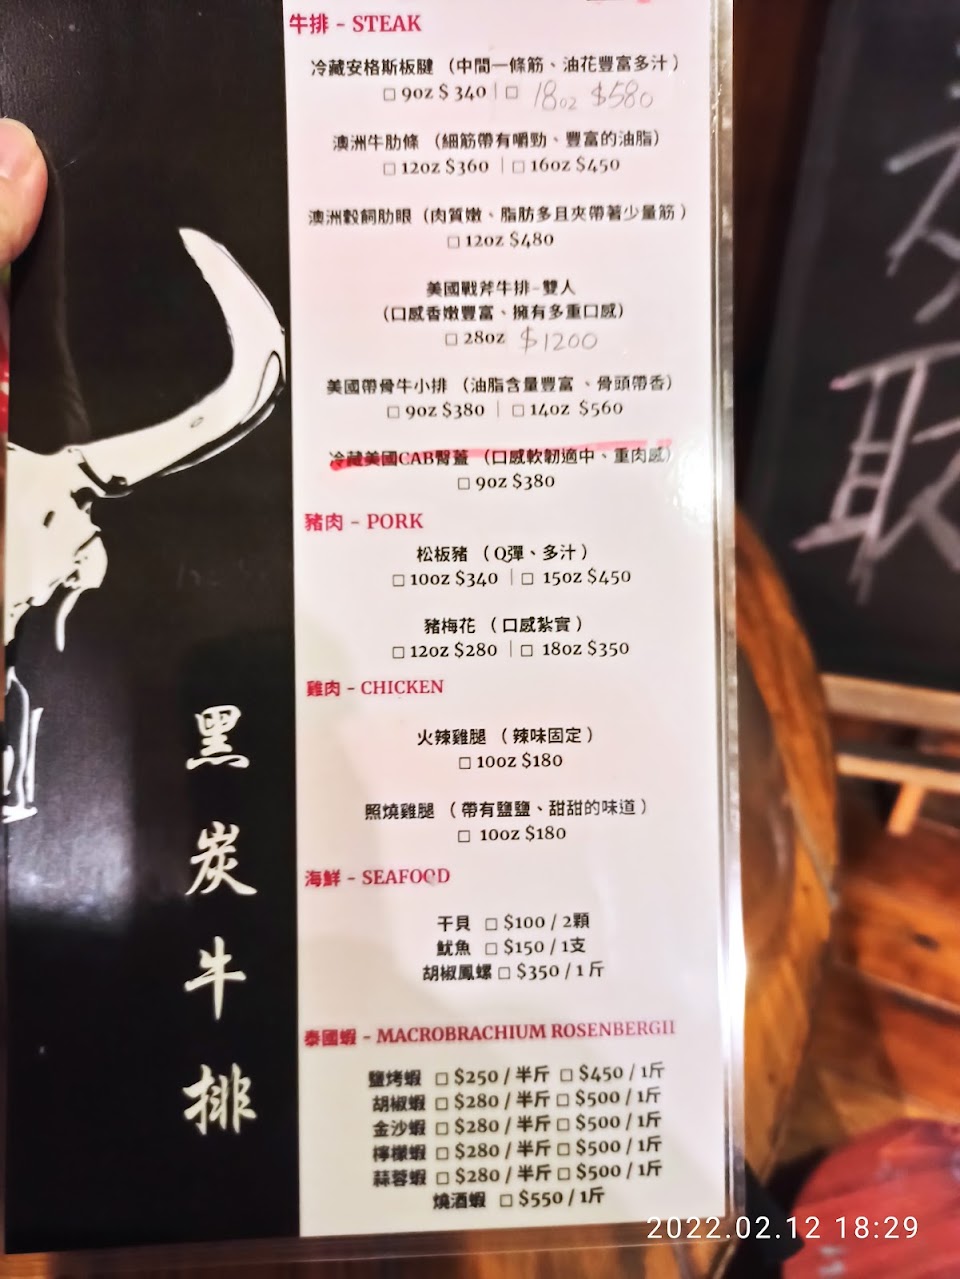 牛排 - STEAK
冷藏安格斯板腱 （中間一條筋、油花豐富多汁）
□ 9oz $ 340 | □ 18oz $580
澳洲牛肋條 （細筋帶有嚼勁、豐富的油脂）
□ 12oz $360 | □ 16oz $450
澳洲穀飼肋眼（肉質嫩、脂肪多且夾帶著少量筋）
□ 12oz $480
美國戰斧牛排-雙人
（口感香嫩豐富、擁有多重口感）
□ 28oz $1200
美國帶骨牛小排 （油脂含量豐富 、骨頭帶香）
□ 9oz $380 | □ 14oz $560
冷藏美國CAB臀蓋 （口感軟韌適中、重肉感）
□ 9oz $380
豬肉 - PORK
松板豬 （ Q彈、多汁 ）
□ 10oz $340 | □ 15oz $450
豬梅花 （ 口感紮實 ）
□ 12oz $280 | □ 18oz $350
雞肉 - CHICKEN
火辣雞腿 （ 辣味固定 ）
□ 10oz $180
照燒雞腿 （ 帶有鹽鹽、甜甜的味道 ）
□ 10oz $180
海鮮 - SEAFOOD
干貝 □ $100 / 2顆
魷魚 □ $150 / 1支
胡椒鳳螺 □ $350 / 1斤
泰國蝦 - MACROBRACHIUM ROSENBERGII
鹽烤蝦 □ $250 / 半斤 □ $450 / 1斤
胡椒蝦 □ $280 / 半斤 □ $500 / 1斤
金沙蝦 □ $280 / 半斤 □ $500 / 1斤
檸檬蝦 □ $280 / 半斤 □ $500 / 1斤
蒜蓉蝦 □ $280 / 半斤 □ $500 / 1斤
燒酒蝦 □ $550 / 1斤
黑炭牛排
2022.02.12 18:29